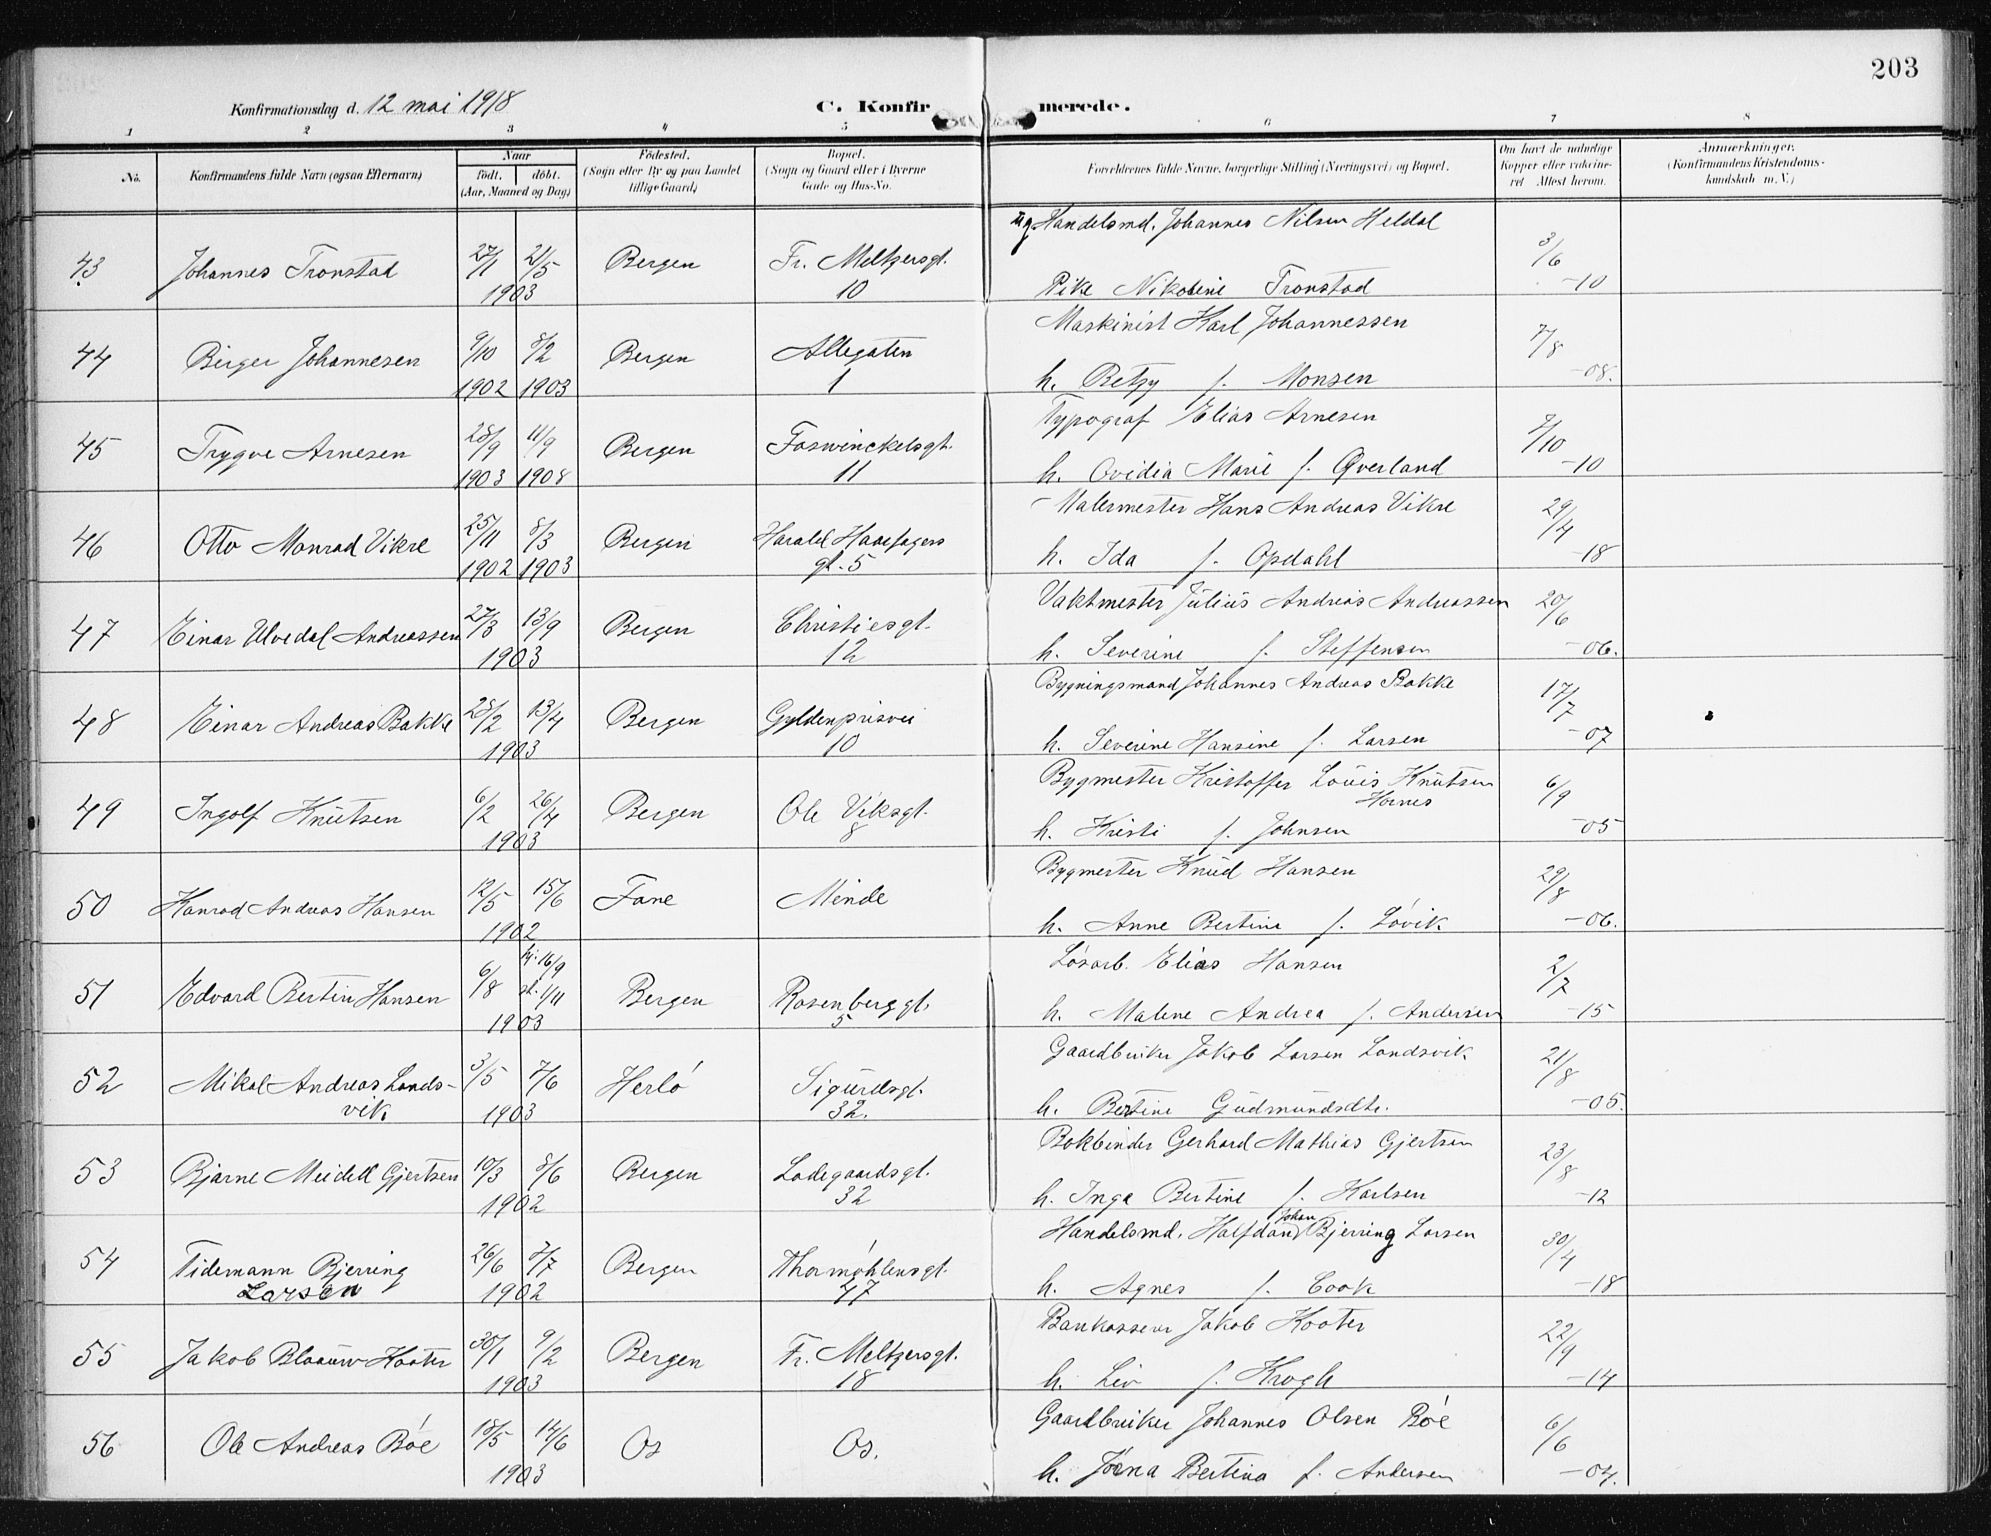 203
Konfirmationsdag d. 12 mai 1918 C. Konfirmerede.
1 2 3 4 5 6 7 8
No. Konfirmandens fulde Navn (ogsaa Efternavn) Naar født. døbt. (Aar, Maaned og Dag) Fødested. (Sogn eller By og paa Landet tillige Gaard) Bopæl. (Sogn og Gaard eller i Byerne Gade og Hus-No. Forældrenes fulde Navne, borgerlige Stilling (Næringsvei) og Bopæl. Om havt de naturlige Kopper eller vakcineret. Attest herom. Anmærkninger. (Konfirmandens Kristendomskundskab m. V.)
Ug Handelsmd. Johannes Nilsen Heldal
43 Johannes Tronstad 27/1 21/5 Bergen Fr. Meltzersgt. 3/6
1903 10 Pike Nikoline Tronstad -10
Maskinist Karl Johannessen
44 Birger Johannesen 9/10 8/2 Bergen Allegaten 7/8
1902 1903 1 h. Betzy f. Monsen -08.
Typograf Elias Arnesen
45 Trygve Arnesen 28/9 11/9 Bergen Foswinckelsgt. 7/10
1903 1908 11 h. Ovidia Marie f. Øverland -10
Malermester Hans Andreas Vikre
46 Otto Monrad Vikre 25/11 8/3 Bergen Harald Haarfagers 29/4
1902 1903 gt. 5 h. Ida f. Opdahl -18
Vaktmester Julius Andreas Andreassen
47 Einar Ulvedal Andreassen 27/3 13/9 Bergen Christiesgt. 20/6
1903 12 h. Severine f. Steffensen -06.
Bygningsmand Johannes Andreas Bakke
48 Einar Andreas Bakke 28/2 13/4 Bergen Gyldenprisvei 17/7
1903 10 h. Severine Hansine f. Larsen -07
Bygmester Kristoffer Louis Knutsen
49 Ingolf Knutsen 6/2 26/4 Bergen Ole Viksgt. 6/9
1903 8 h. Kristi f. Johnsen -05
Bygmester Knud Hansen
50 Konrad Andreas Hansen 12/5 15/6 Fane Minde 29/8
1902 h. Anne Bertine f. Løvik -06.
Løsarb. Elias Hansen
51 Edvard Bertin Hansen 6/8 hj. 16/9 st. 1/11 Bergen Rosenberggt. 2/7
1903 5 h. Malene Andrea f. Andersen -15
Gaardbruker Jakob Larsen Landsvik
52 Mikal Andreas Landsvik 3/5 7/6 Herlø Sigurdsgt. 21/8
1903 32. h. Bertine Gudmundsdtr. -05.
Bokbinder Gerhard Mathias Gjertsen
53 Bjarne Meidell Gjertsen 10/3 8/6 Bergen Ladegaardsgt. 23/8
1902 32 h. Inga Bertine f. Karlsen -12
Handelsmd. Halfdan Johan Bjerring Larsen
54 Tidemann Bjerring Larsen 26/6 7/7 Bergen Thormøhlensgt. 30/4
1902 47 h. Agnes f. Cook -18
Bankasserer Jakob Kooter
55 Jakob Blaauw Kooter 30/1 9/2 Bergen Fr. Meltzersgt. 22/9
1903 18 h. Liv f. Krogh -14
Gaardbruiker Johannes Olsen Bøe
56 Ole Andreas Bøe 18/5 14/6 Os Os. 6/6
1903 h. Bertina f. Andersen -04.